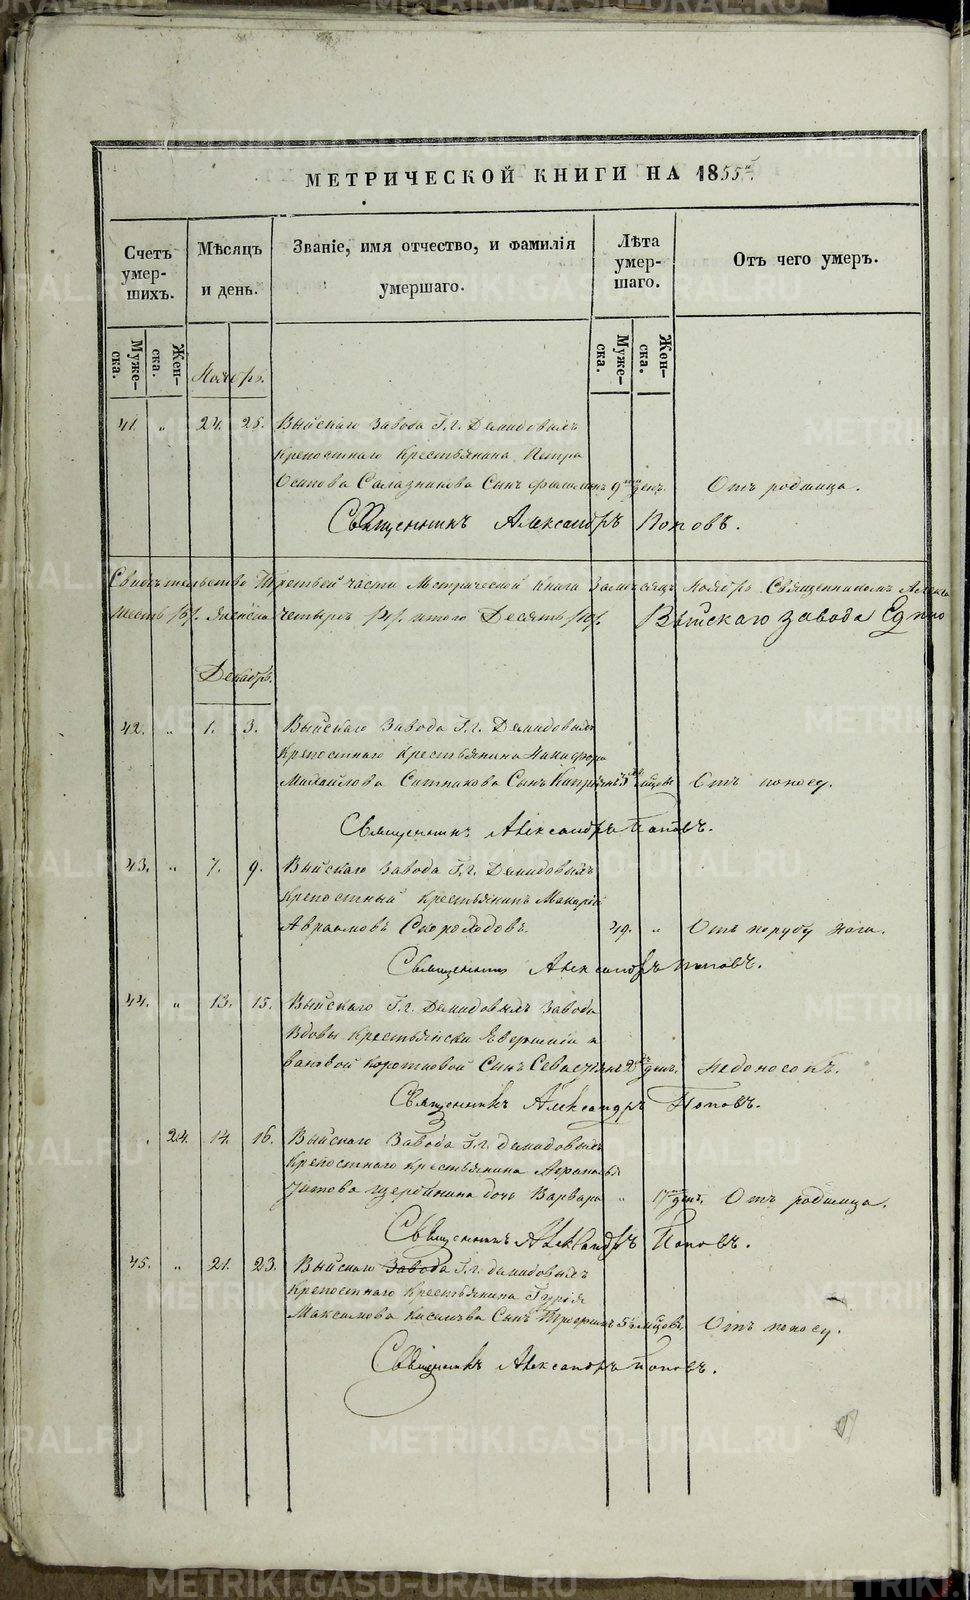 МЕТРИЧЕСКОЙ КНИГИ НА 1855й.
Счетъ умер-шихъ.
Мѣсяцъ и день.
Званіе, имя отчество, и фамилія умершаго.
Лѣта умер-шаго.
Отъ чего умеръ.
Муже-ска.
Жен-ска.
Муже-ска.
Жен-ска.
Ноябрь.
41. " 24. 25. Выйскаго завода Г.г. Демидовыхъ
крепостнаго крестьянина Петра
Осипова Сынъ 9 ден. Отъ родимца.
Священникъ Александръ Поповъ.
Третьей части Метрической Книги за месяцъ Ноябрь Священникомъ
шесть /6/. Женска четыре /4/. итого Десять /10/. Выйскаго завода
Декабрь.
42. " 1. 3. Выйскаго Завода Г.г. Демидовыхъ
крепостнаго крестьянина Никифора
Михайлова Ситникова Сынъ 5 Отъ поносу.
Священникъ Александръ Поповъ.
43. " 7. 9. Выйскаго завода Г.г. Демидовыхъ
крепостный крестьянинъ Макарій
Авраамовъ Скороходовъ. 49. " Отъ порубу ноги.
Священникъ Александръ Поповъ.
44. " 13. 15. Выйскаго Г.г. Демидовыхъ завода
вдовы крестьянски
Сынъ 2 ден. Недоносокъ.
Священникъ Александръ Поповъ.
. 24. 14. 16. Выйскаго Завода Г.г. Демидовыхъ
крепостнаго крестьянина
Титова Щербинина дочь Варвара " 17 ден. Отъ родимца.
Священникъ Александръ Поповъ.
45. " 21. 23. Выйскаго Завода Г.г. Демидовыхъ
крепостнаго крестьянина Гурія
Максимова Сынъ 5 Отъ поносу.
Священникъ Александръ Поповъ.
METRIKI.GASO-URAL.RU